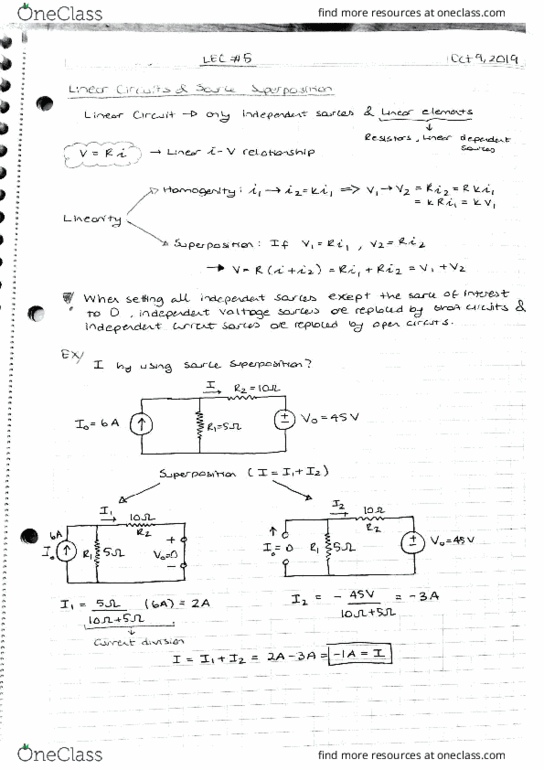 OneClass
find more resources at oneclass.com
LEC #5
Oct 9, 2019
Linear Circuits & Source Superposition
Linear Circuit → only independent sources & linear elements
Resistors, Linear dependent sources
V = Ri → Linear i-V relationship
Linearity
Homogenity: i₁ → i₂ = ki₁ ⇒ V₁ → V₂ = Ri₂ = Rki₁
= kRi₁ = kV₁
Superposition: If V₁ = Ri₁, V₂ = Ri₂
→ V = R(i + i₂) = Ri₁ + Ri₂ = V₁ + V₂
When setting all independent sources exept the source of interest
to 0, independent voltage sources are replaced by short circuits &
independent current sources are replaced by open circuits.
EX/
I by using source superposition?
I
R₂ = 10Ω
I₀ = 6A
R₁ = 5Ω
V₀ = 45V
Superposition (I = I₁ + I₂)
I₁
10Ω
R₂
6A
I₀
R₁
5Ω
+
V₀ = 0
-
I₂
10Ω
R₂
I₀ = 0
R₁
5Ω
V₀ = 45V
I₁ = 5Ω / 10Ω + 5Ω (6A) = 2A
Current division
I₂ = - 45V / 10Ω + 5Ω = -3A
I = I₁ + I₂ = 2A - 3A = -1A = I
OneClass
find more resources at oneclass.com